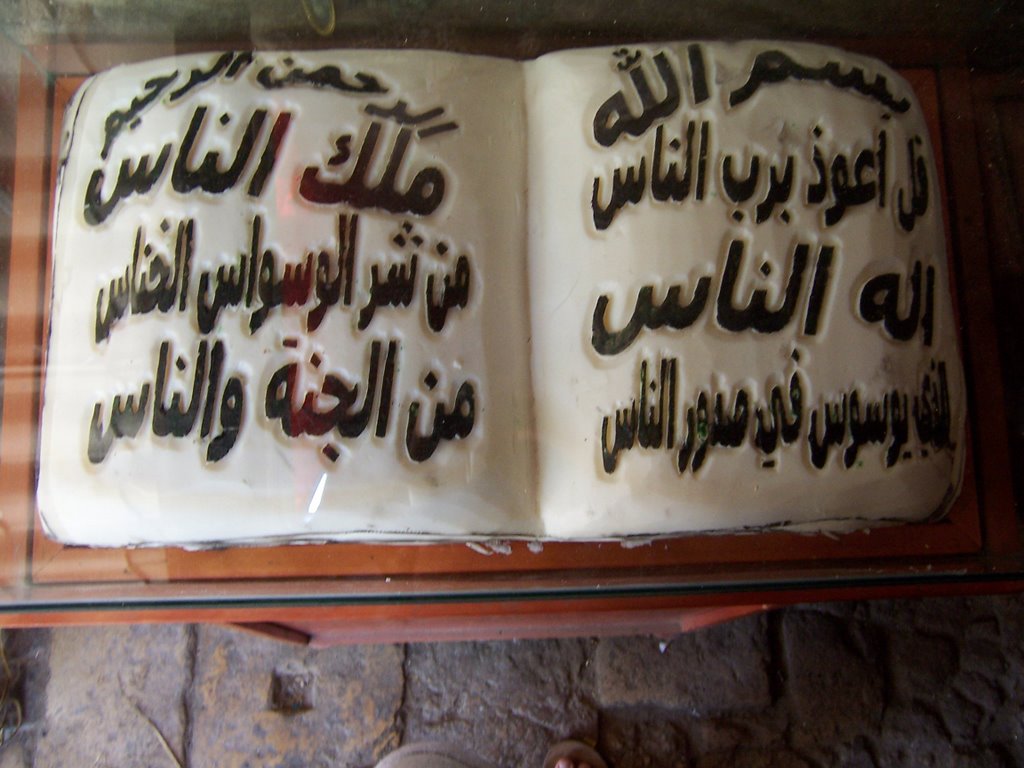 بسم الله الرحمن الرحيم
قل أعوذ برب الناس
ملك الناس
اله الناس
من شر الوسواس الخناس
الذي يوسوس في صدور الناس
من الجنة والناس